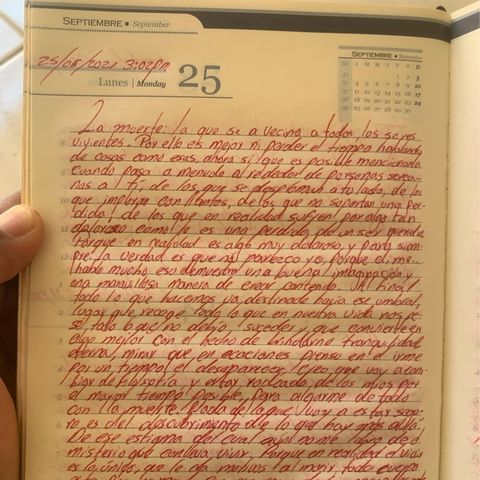 SEPTIEMBRE • September
25/08/2021 3:02pm
Lunes | Monday 25
SEPTIEMBRE • September
La muerte: la que se a vecina a todos los seres
vivientes. Por ello es mejor ni perder el tiempo hablando
de cosas como esas, ahora si, que es posible mencionarla
cuando pasa a menudo al rededor de personas cerca-
nas a ti, de los que se desploman a tu lado, de los
que imploran con llantos, de los que no soportan una per-
dida, de los que en realidad sufren por algo tan
doloroso como lo es una perdida de un ser querido
Porque en realidad es algo muy doloroso, y para siem-
pre. la verdad es que no parezco yo, porque di me-
hablo mucho, eso demuestra una buena imaginación y
una maravillosa manera de crear contenido. Al final
todo lo que hacemos ya destinado hacia ese umbral,
lugar que recoge todo lo que en nuestra vida nos pe-
se, todo o que no debio, suceder y que convierte en
algo mejor con el hecho de brindarno tranquilidad
eterna, mirar que en ocaciones pienso en el irme
por un tiempo el desaparecer. Creo que voy a cam-
biar de filosofía y estar rodeado de los mios por
el mayor tiempo posible, Para alejarme de todo
con la muerte. Nada de lo que voy a estar segu-
ro, es del descubrimiento de lo que hay mas alla.
De ese estigma del cual aquí no me hara de
misterio que conlleva vivir. Porque en realidad el vivir
es lo único, que le da motivos al morir, todo cuerpo